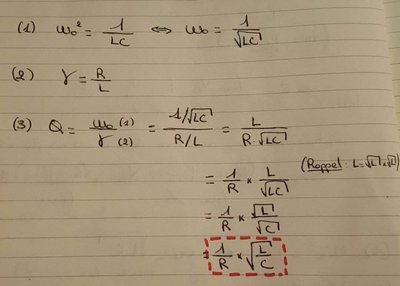 (1) ω₀² = 1/LC ⇔ ω₀ = 1/√LC
(2) γ = R/L
(3) Q = ω₀ (1) / γ (2) = (1/√LC) / (R/L) = L / (R·√LC)
= 1/R × L/√LC (Rappel : L = √L × √L)
= 1/R × √L/√C
= 1/R × √(L/C)